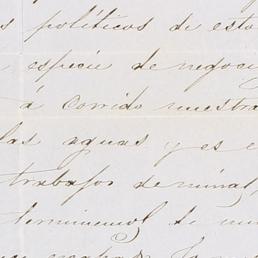 s políticos de esto
especie de negoci
á corrido nuestra
las aguas y es e
trabajos de minas,
terminemos